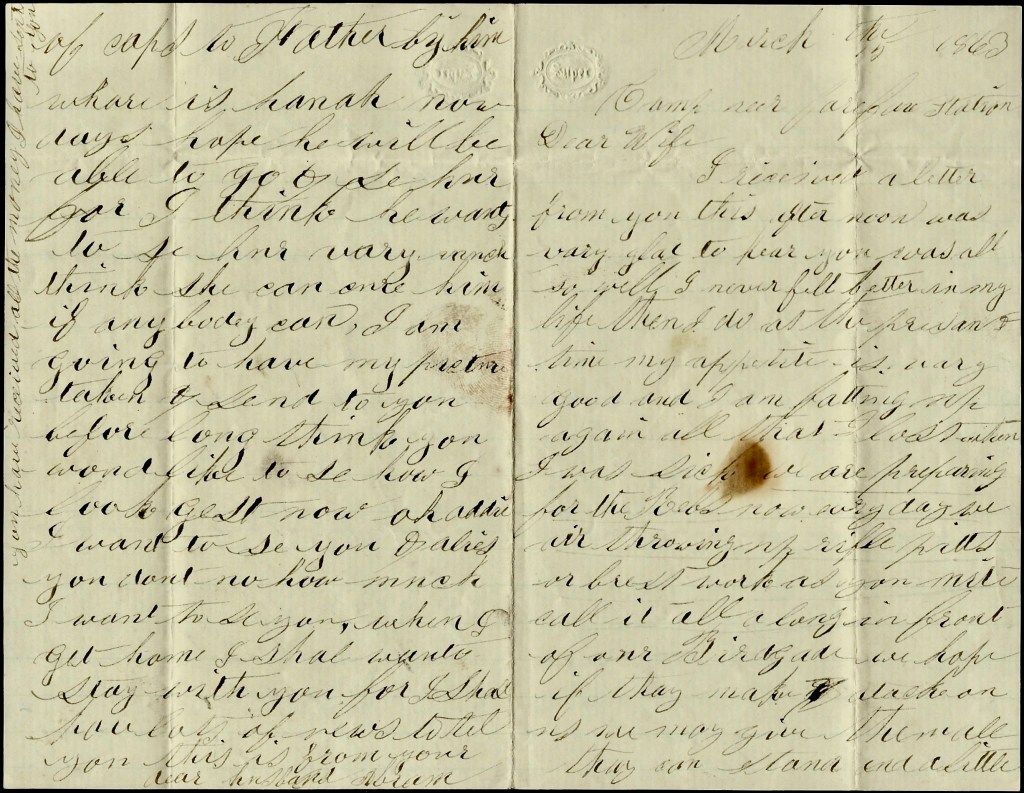 March the 15 1863
Camp neer farefax Station
Dear Wife
I received a letter
from you this after noon was
vary glad to hear you was all
so well, I never felt better in my
life then I do at the presant
time my appetite is vary
good and I am fatting up
again all that I lost when
I was sick we are preparing
for the Rebs now evry day we
air throwing up rifle pitts
or brest work as you mite
call it all along in front
of our Birdgade we hope
if thay make atack on
us we may give them all
thay can stand and a little
of caps to Father by him
whare is hanah now
days hope he will be
able to go & se hur
for I think he wants
to se hur vary much
think she can cure him
if any bodey can, I am
going to have my picture
taken & send to you
before long think you
wond like to se how I
look gest now oh addie
I want to se you & alies
you dont no how much
I want to se you, when I
get home I shal want to
stay with you for I shal
have lots of news to tel
you this is from your
dear husband Abram
you have received all the money I have sent
to you
Super